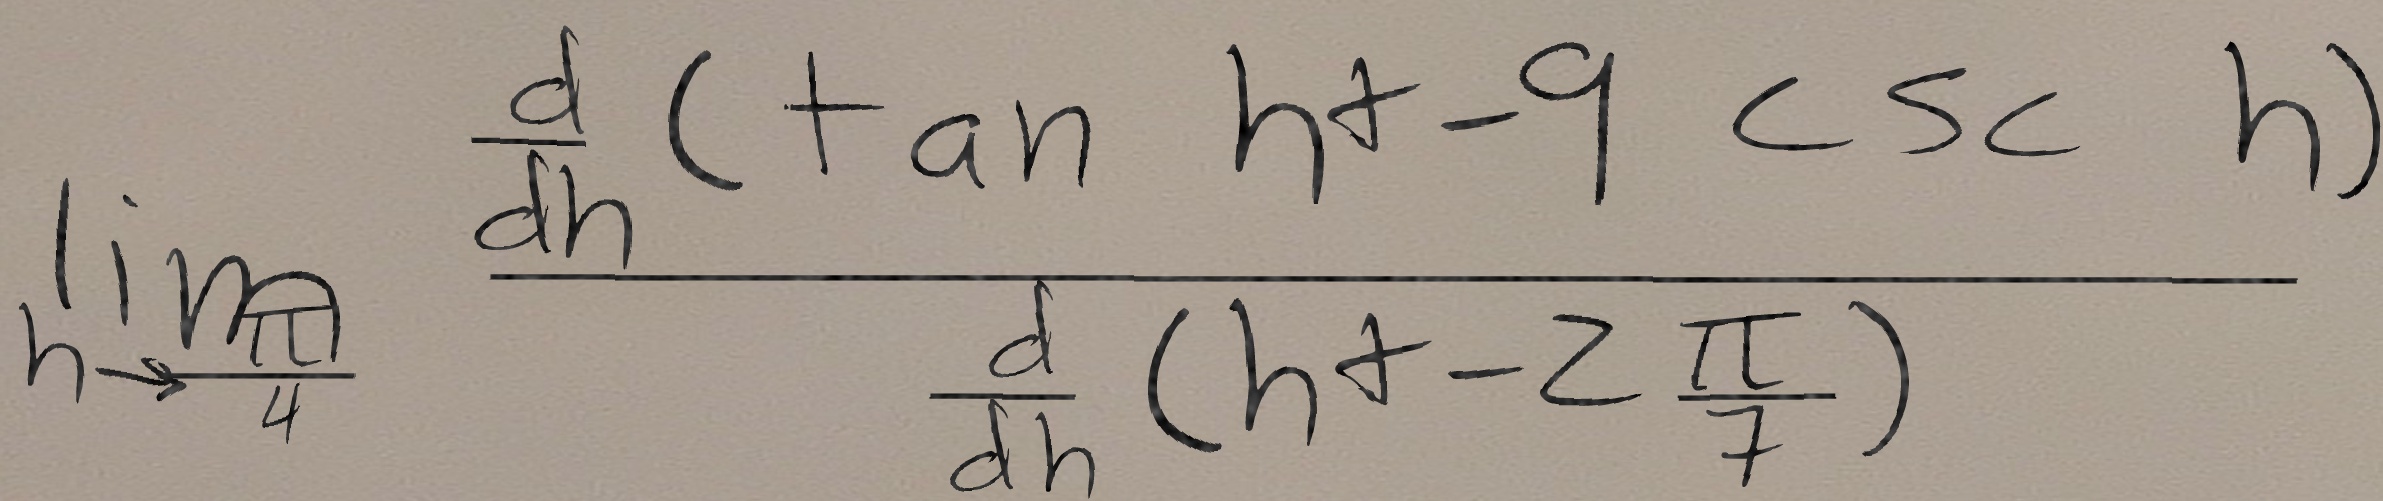 \lim_{h \to \frac{\pi}{4}} \frac{\frac{d}{dh}(\tan h + -9 \csc h)}{\frac{d}{dh}(h + -2 \frac{\pi}{7})}